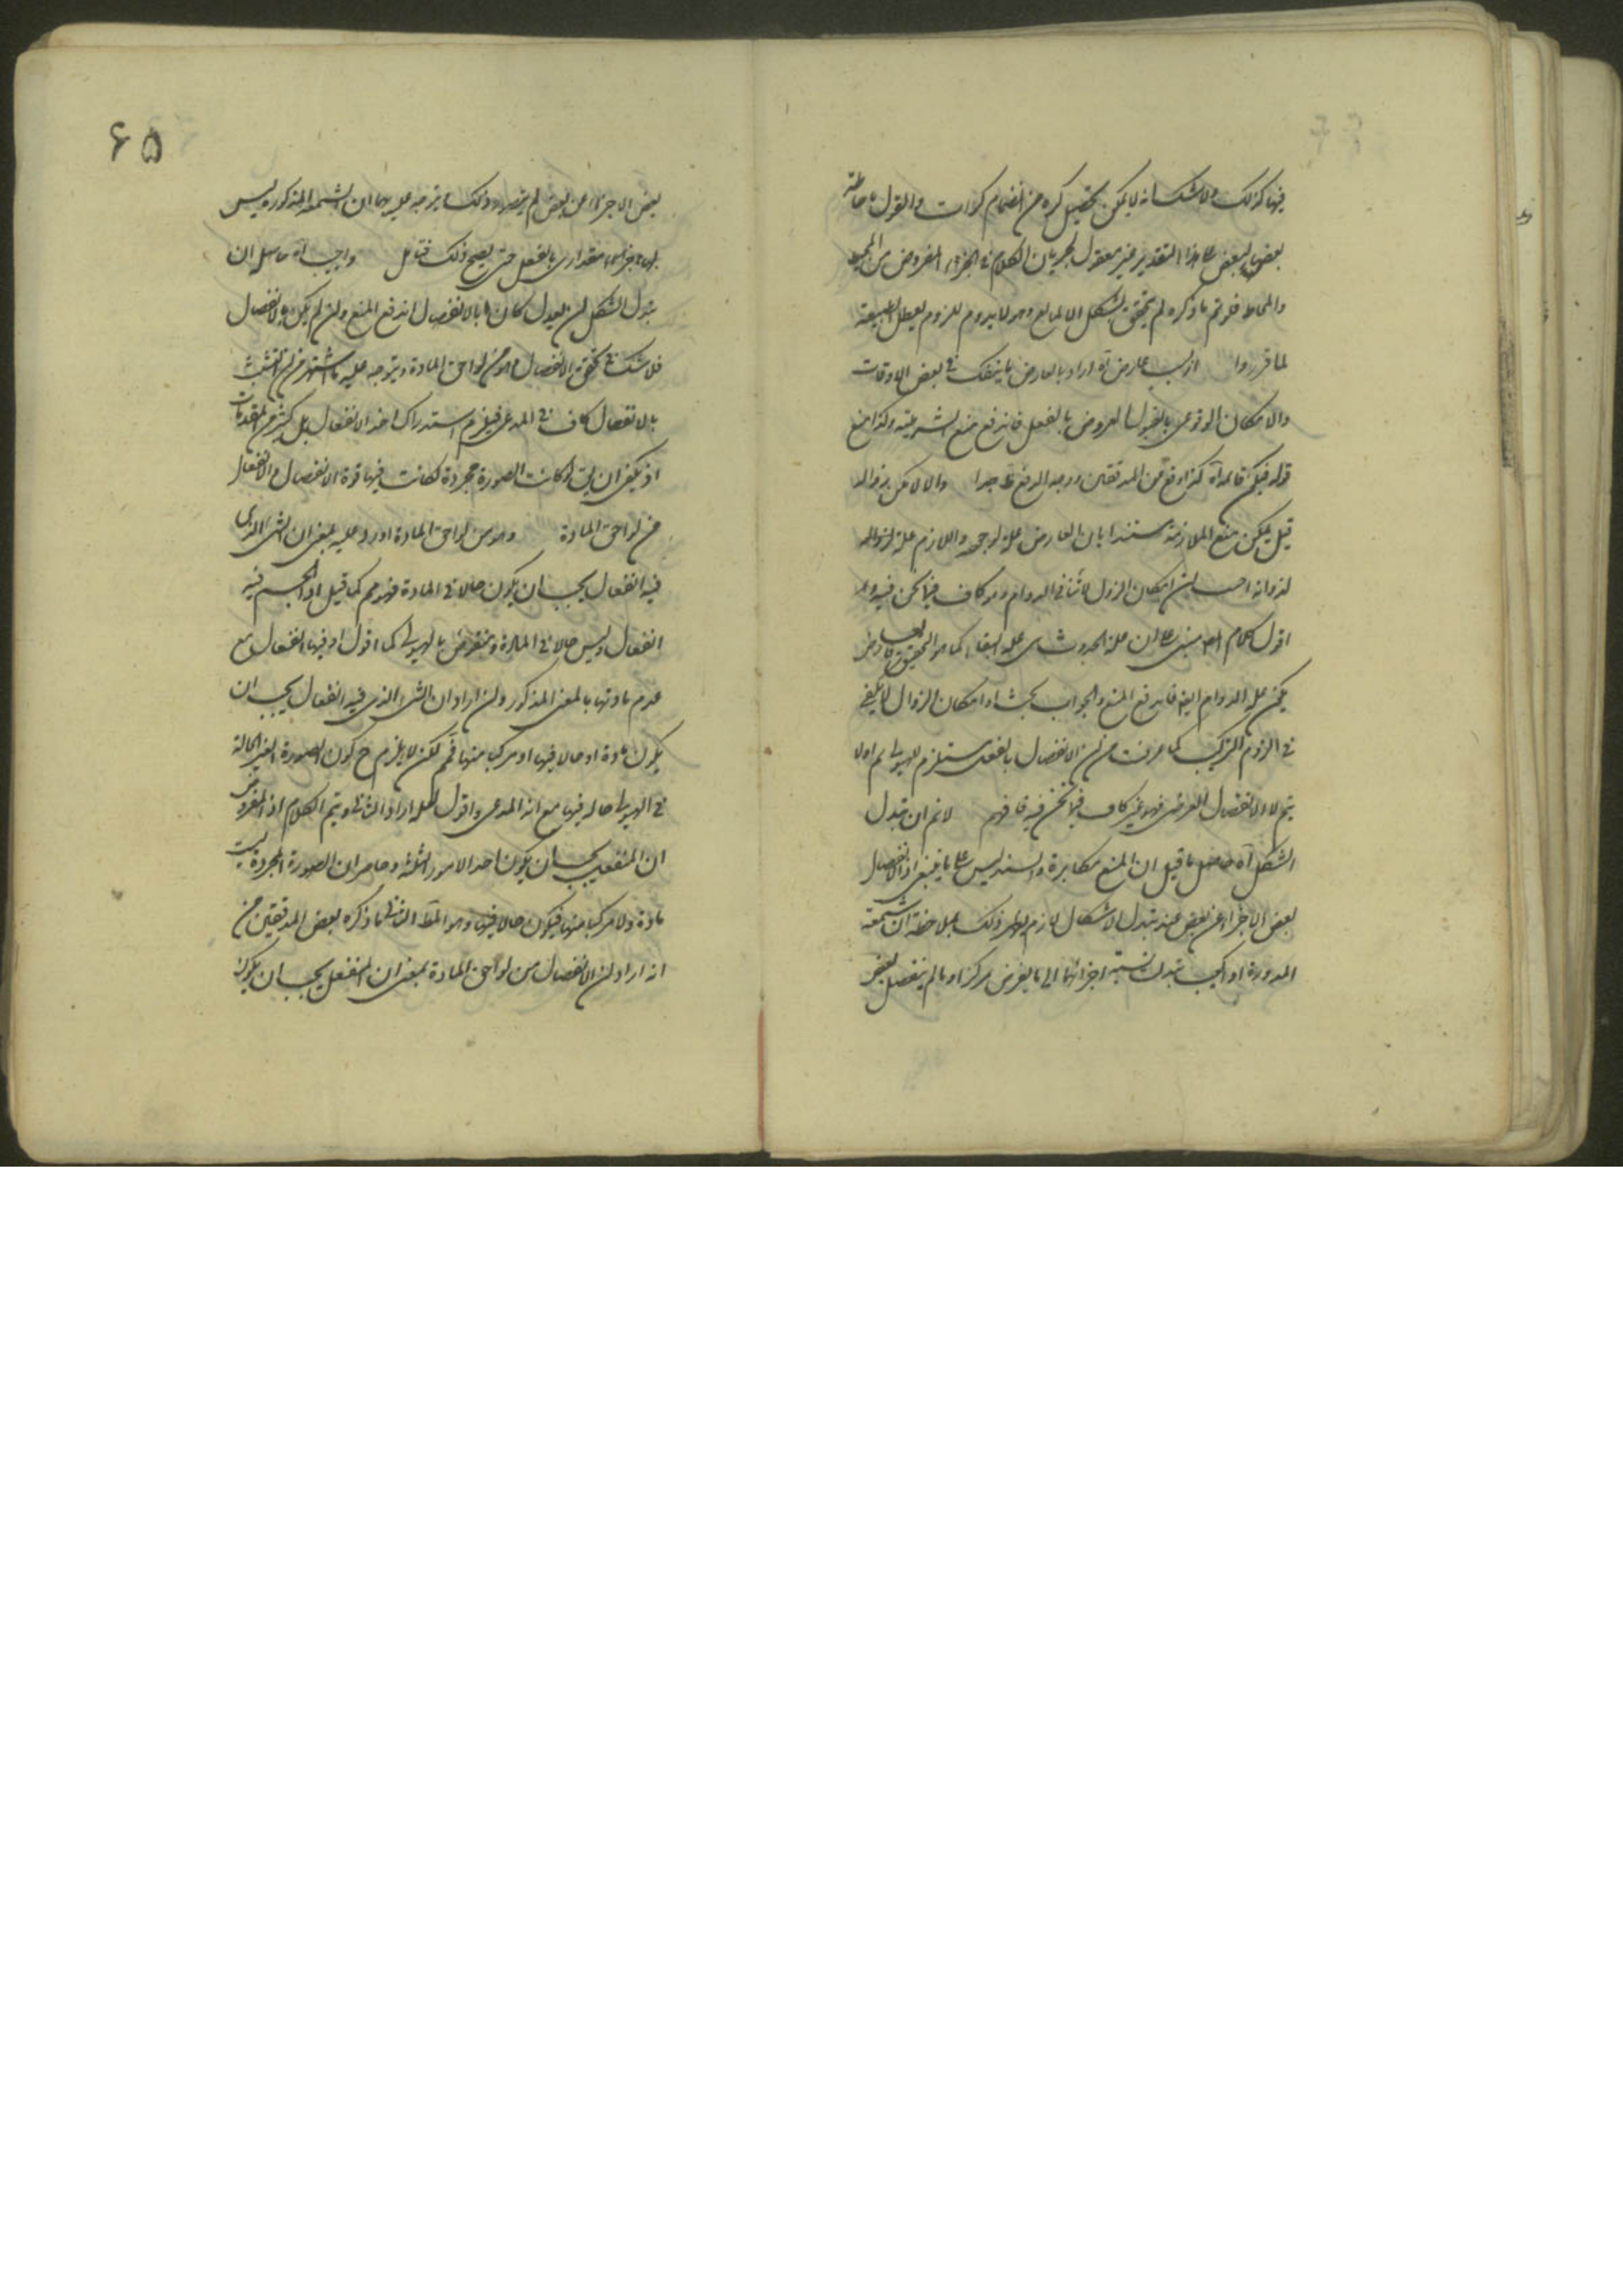 فيها كذلك ولا شك انه لا يمكن تحصيل كره من انضمام كرات والقول باحاطة
بعضها لبعض على هذا التقدير غير معقول لجريان الكلام في الجزء المفروض من المحيط
والمحاط فلو تم ما ذكره لم يتحقق الشكل الا لمانع وهو لا يدوم للزوم تعطل الطبيعة
لما قرروا او لسبب عارض آه اراد بالعارض ما ينفك في بعض الاوقات
والامكان الوقوعى بالقبول العروض بالفعل فاندفع منع الشرطية وكذا منع
قوله فيكن قابلة آه كذا وقع من المدققين ووجه الدفع ظ جدا والا لامكن بزواله
قيل يمكن منع الملازمة مستندا بان العارض علة لوجوده واللازم علة لزواله
لذواته اجيب بان امكان الزوال ينافى الدوام وهو كاف فيما نحن فيه
اقول كلام المص مبنى على ان علة الحدوث هى علة البقاء كما هو التحقيق
يمكن علة الدوام ايضا فاندفع المنع والجواب بحث اذ امكان الزوال لا يكفى
في لزوم التركيب كما عرفت من ان الانفصال بالفعل يستلزم الهيولى ام لا
يتم لا والانفصال العرضى فهو غير كاف فيما نحن فيه فافهم لا نم ان تبدل
الشكل آه حاصل ما قيل ان المنع مكابرة والسند ليس على ما ينبغى اذ الانفصال
بعض الاجزاء عن بعض عند تبدل الاشكال لازم يظهر ذلك بملاحظة ان الشمعة
المدورة اذا كعبت تبدلت نسبة اجزائها الى ما يفرض مركزا وما لم ينفصل بعض
۶۵
بعض الاجزاء من بعض لم يتصور ذلك ويتوجه عليه ان الشمعة المذكورة ليس
لها اجزاء مقدارى بالفعل حتى يصح ذلك فتامل واجيب آه حاصله ان
تبدل الشكل ان كان بالانفصال اندفع المنع وان لم يكن بالانفصال
فلا شك في تحقق الانفعال وهو من لواحق المادة ويتوجه عليه ما اشتهر من ان التشبث
بالانفعال كاف في المدعى فيلزم استدراك اخذ الانفصال بل كثير من المقدمات
اذ يكفى ان يق لو كانت الصورة مجردة لكانت فيها قوة الانفصال والانفعال
من لواحق المادة وهو من لواحق المادة اورد عليه بمعنى ان الشئ الذى
فيه انفعال يجب ان يكون حالا في المادة فهو مم كما قيل اذ الجسم فيه
انفعال وليس حالا في المادة ومنقوض بالهيولى كما اقول اذ فيها انفعال مع
عدم مادتها بالمعنى المذكور وان اراد ان الشئ الذى فيه انفعال يجب ان
يكون مادة او حالا فيها او مركبا منها فمم لكن لا يلزم ح كون الصورة الغير الحالة
في الهيولى حالة فيها مع انه المدعى واقول لعله اراد الثانى ويتم الكلام اذ المفروض
ان المنفعل يجب ان يكون احد الامور الثلثة وظاهر ان الصورة المجردة ليست
مادة ولا مركبا منها فيكون حالا فيها وهو المط الثانى ما ذكره بعض المدققين من
انه اراد ان الانفصال من لواحق المادة بمعنى ان المنفعل يجب ان يكون